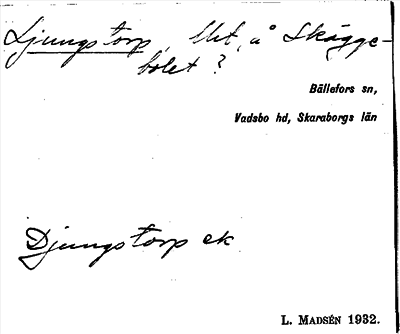 Ljungstorp, Ut. å Skägge-
bolet?
Bällefors sn,
Vadsbo hd, Skaraborgs län
Djungstorp ek
L. MADSÉN 1932.